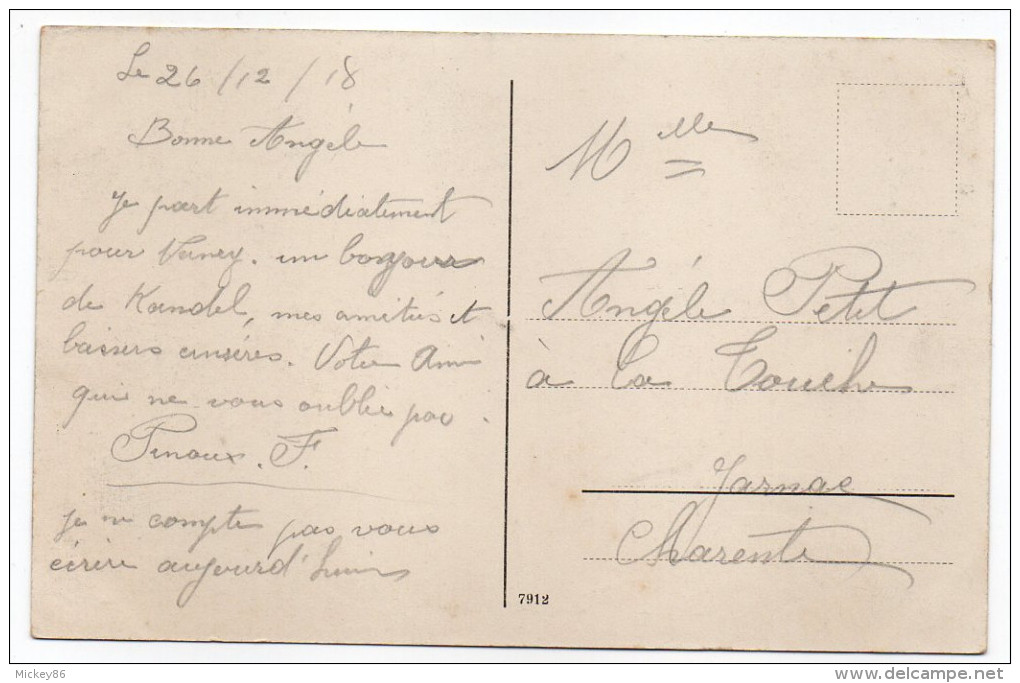 Le 26/12/18
Bonne Angèle
Je part immédiatement
pour Nancy. un bonjour
de Kandel, mes amitiés et
baisers sinsères. Votre Ami
qui ne vous oublie pas.
Pinoux. F.
je ne compte pas vous
écrire aujourd'hui
Mlle
Angéle Petit
à la Touche
Jarnac
Charente
7912
Mickey86
www.delcampe.net